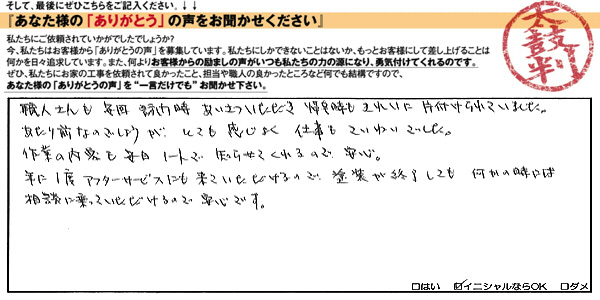 そして、最後にぜひこちらをご記入ください。↓↓
『あなた様の「ありがとう」の声をお聞かせください』
私たちにご依頼されていかがでしたでしょうか?
今、私たちはお客様から「ありがとうの声」を募集しています。私たちにしかできないことはないか、もっとお客様にして差し上げることは
何かを日々追求しています。また、何よりお客様からの励ましの声がいつも私たちの力の源になり、勇気付けてくれるのです。
ぜひ、私たちにお家の工事を依頼されて良かったこと、担当や職人の良かったところなど何でも結構ですので、
あなた様の「ありがとうの声」を“一言だけでも”お聞かせ下さい。
太鼓判
職人さんも毎回 訪問時 あいさついただき 帰る時もきれいに片付けられていました。
あたり前なのでしょうが、とても感じよく 仕事もていねいでした。
作業の内容も毎日 1人で 知らせてくれるので 安心。
年に1度 アフターサービスにも来ていただけるので、塗装が終了しても 何かの時には
相談に乗っていただけるので 安心です。
□はい ☑イニシャルならOK □ダメ